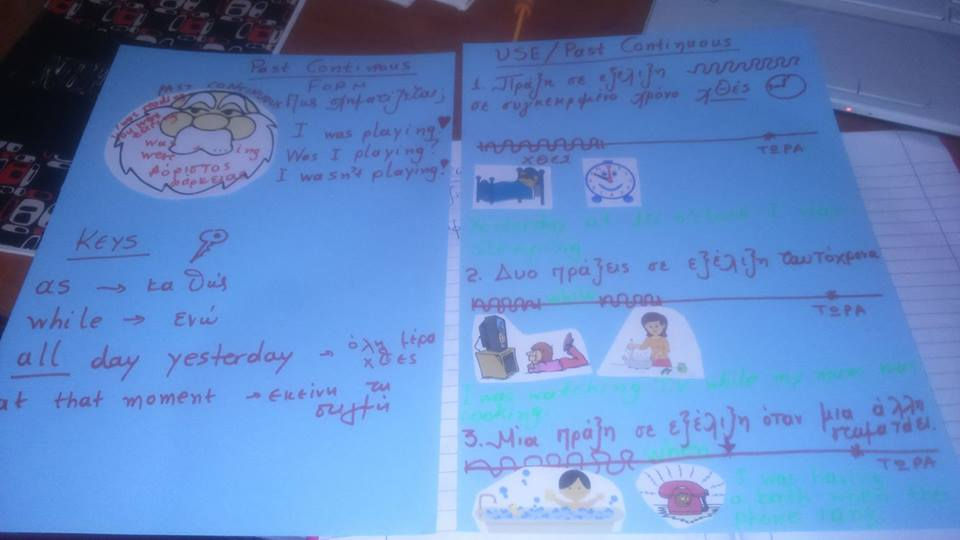 Past Continuous
PAST CONTINUOUS
FORM
Πως σχηματίζεται;
I was playing!
Was I playing?
I wasn't playing!
was
were
ing
αόριστος
διάρκειας
KEYS
as → καθώς
while → ενώ
all day yesterday → όλη μέρα
χθες
at that moment → εκείνη τη
στιγμή
USE/Past Continuous
1. Πράξη σε εξέλιξη
σε συγκεκριμένο χρόνο χθές
ΧΘΕΣ
ΤΩΡΑ
Yesterday at o'clock I was
sleeping
2. Δυο πράξεις σε εξέλιξη ταυτόχρονα
while
ΤΩΡΑ
I was watching TV while my mum was
cooking.
3. Μία πράξη σε εξέλιξη όταν μια άλλη
σταματάει.
when
ΤΩΡΑ
I was having
a bath when the
phone rang.